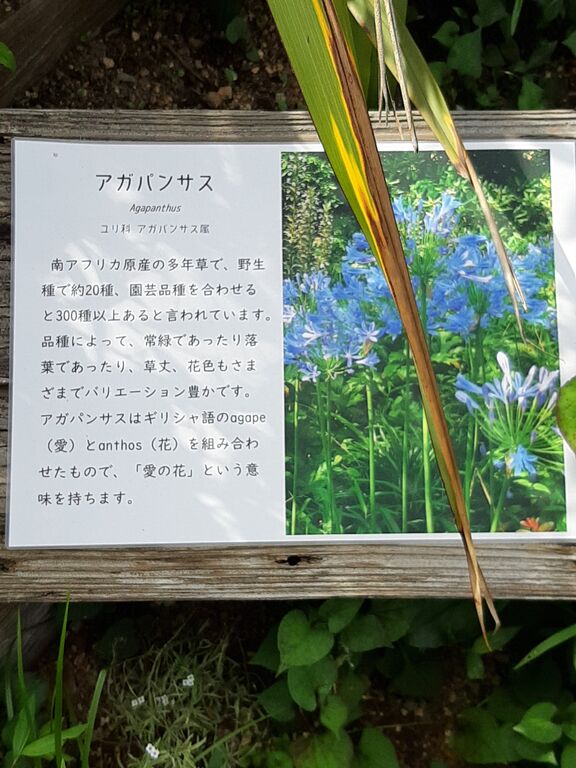 アガパンサス
Agapanthus
ユリ科 アガパンサス属
南アフリカ原産の多年草で、野生
種で約20種、園芸品種を合わせる
と300種以上あると言われています。
品種によって、常緑であったり落
葉であったり、草丈、花色もさま
ざまでバリエーション豊かです。
アガパンサスはギリシャ語のagape
（愛）とanthos（花）を組み合わ
せたもので、「愛の花」という意
味を持ちます。